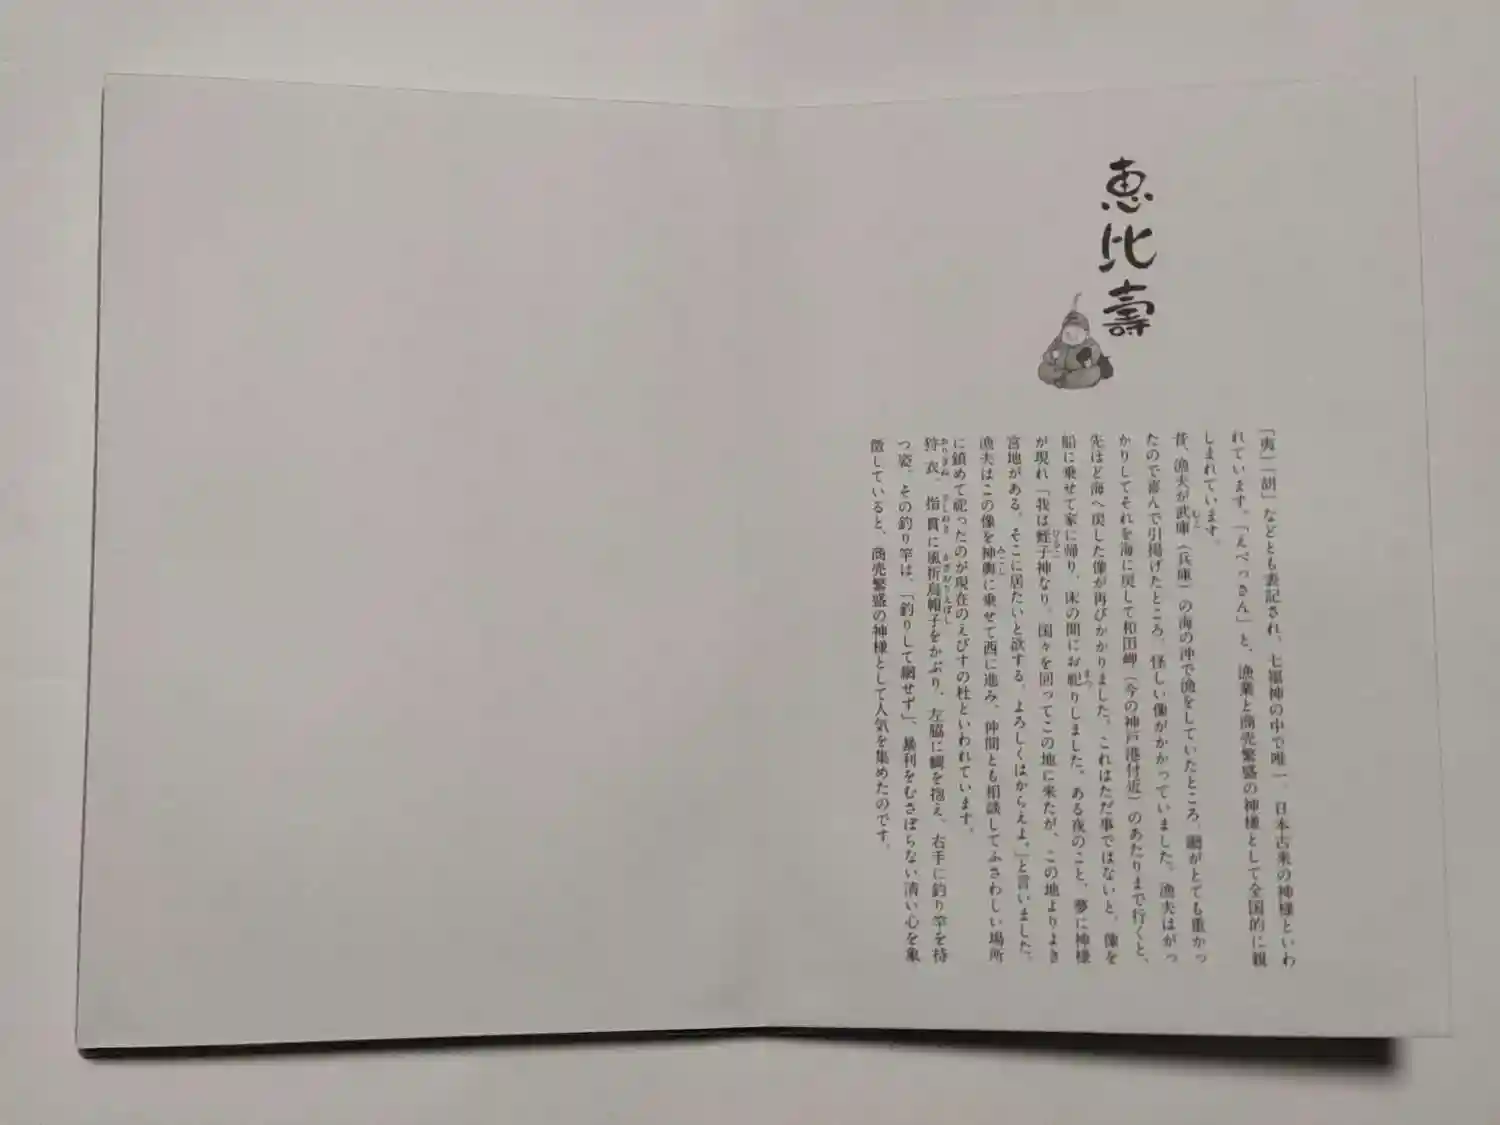 恵比壽
「夷」「胡」などとも表記され、七福神の中で唯一、日本古来の神様といわ
れています。「えべっさん」と、漁業と商売繁盛の神様として全国的に親
しまれています。
昔、漁夫が武庫（兵庫）の海の沖で漁をしていたところ、網がとても重かっ
たので喜んで引揚げたところ、怪しい像がかかっていました。漁夫はがっ
かりしてそれを海に戻して和田岬（今の神戸港付近）のあたりまで行くと、
先ほど海へ戻した像が再びかかりました。これはただ事ではないと、像を
船に乗せて家に帰り、床の間にお祀りしました。ある夜のこと、夢に神様
が現れ「我は蛭子神なり。国々を回ってこの地に来たが、この地よりよき
宮地がある。そこに居たいと欲する。よろしくはからえよ。」と言いました。
漁夫はこの像を神輿に乗せて西に進み、仲間とも相談してふさわしい場所
に鎮めて祀ったのが現在のえびすの杜といわれています。
狩衣、指貫に風折烏帽子をかぶり、左脇に鯛を抱え、右手に釣り竿を持
つ姿。その釣り竿は、「釣りして網せず」、暴利をむさぼらない清い心を象
徴していると、商売繁盛の神様として人気を集めたのです。